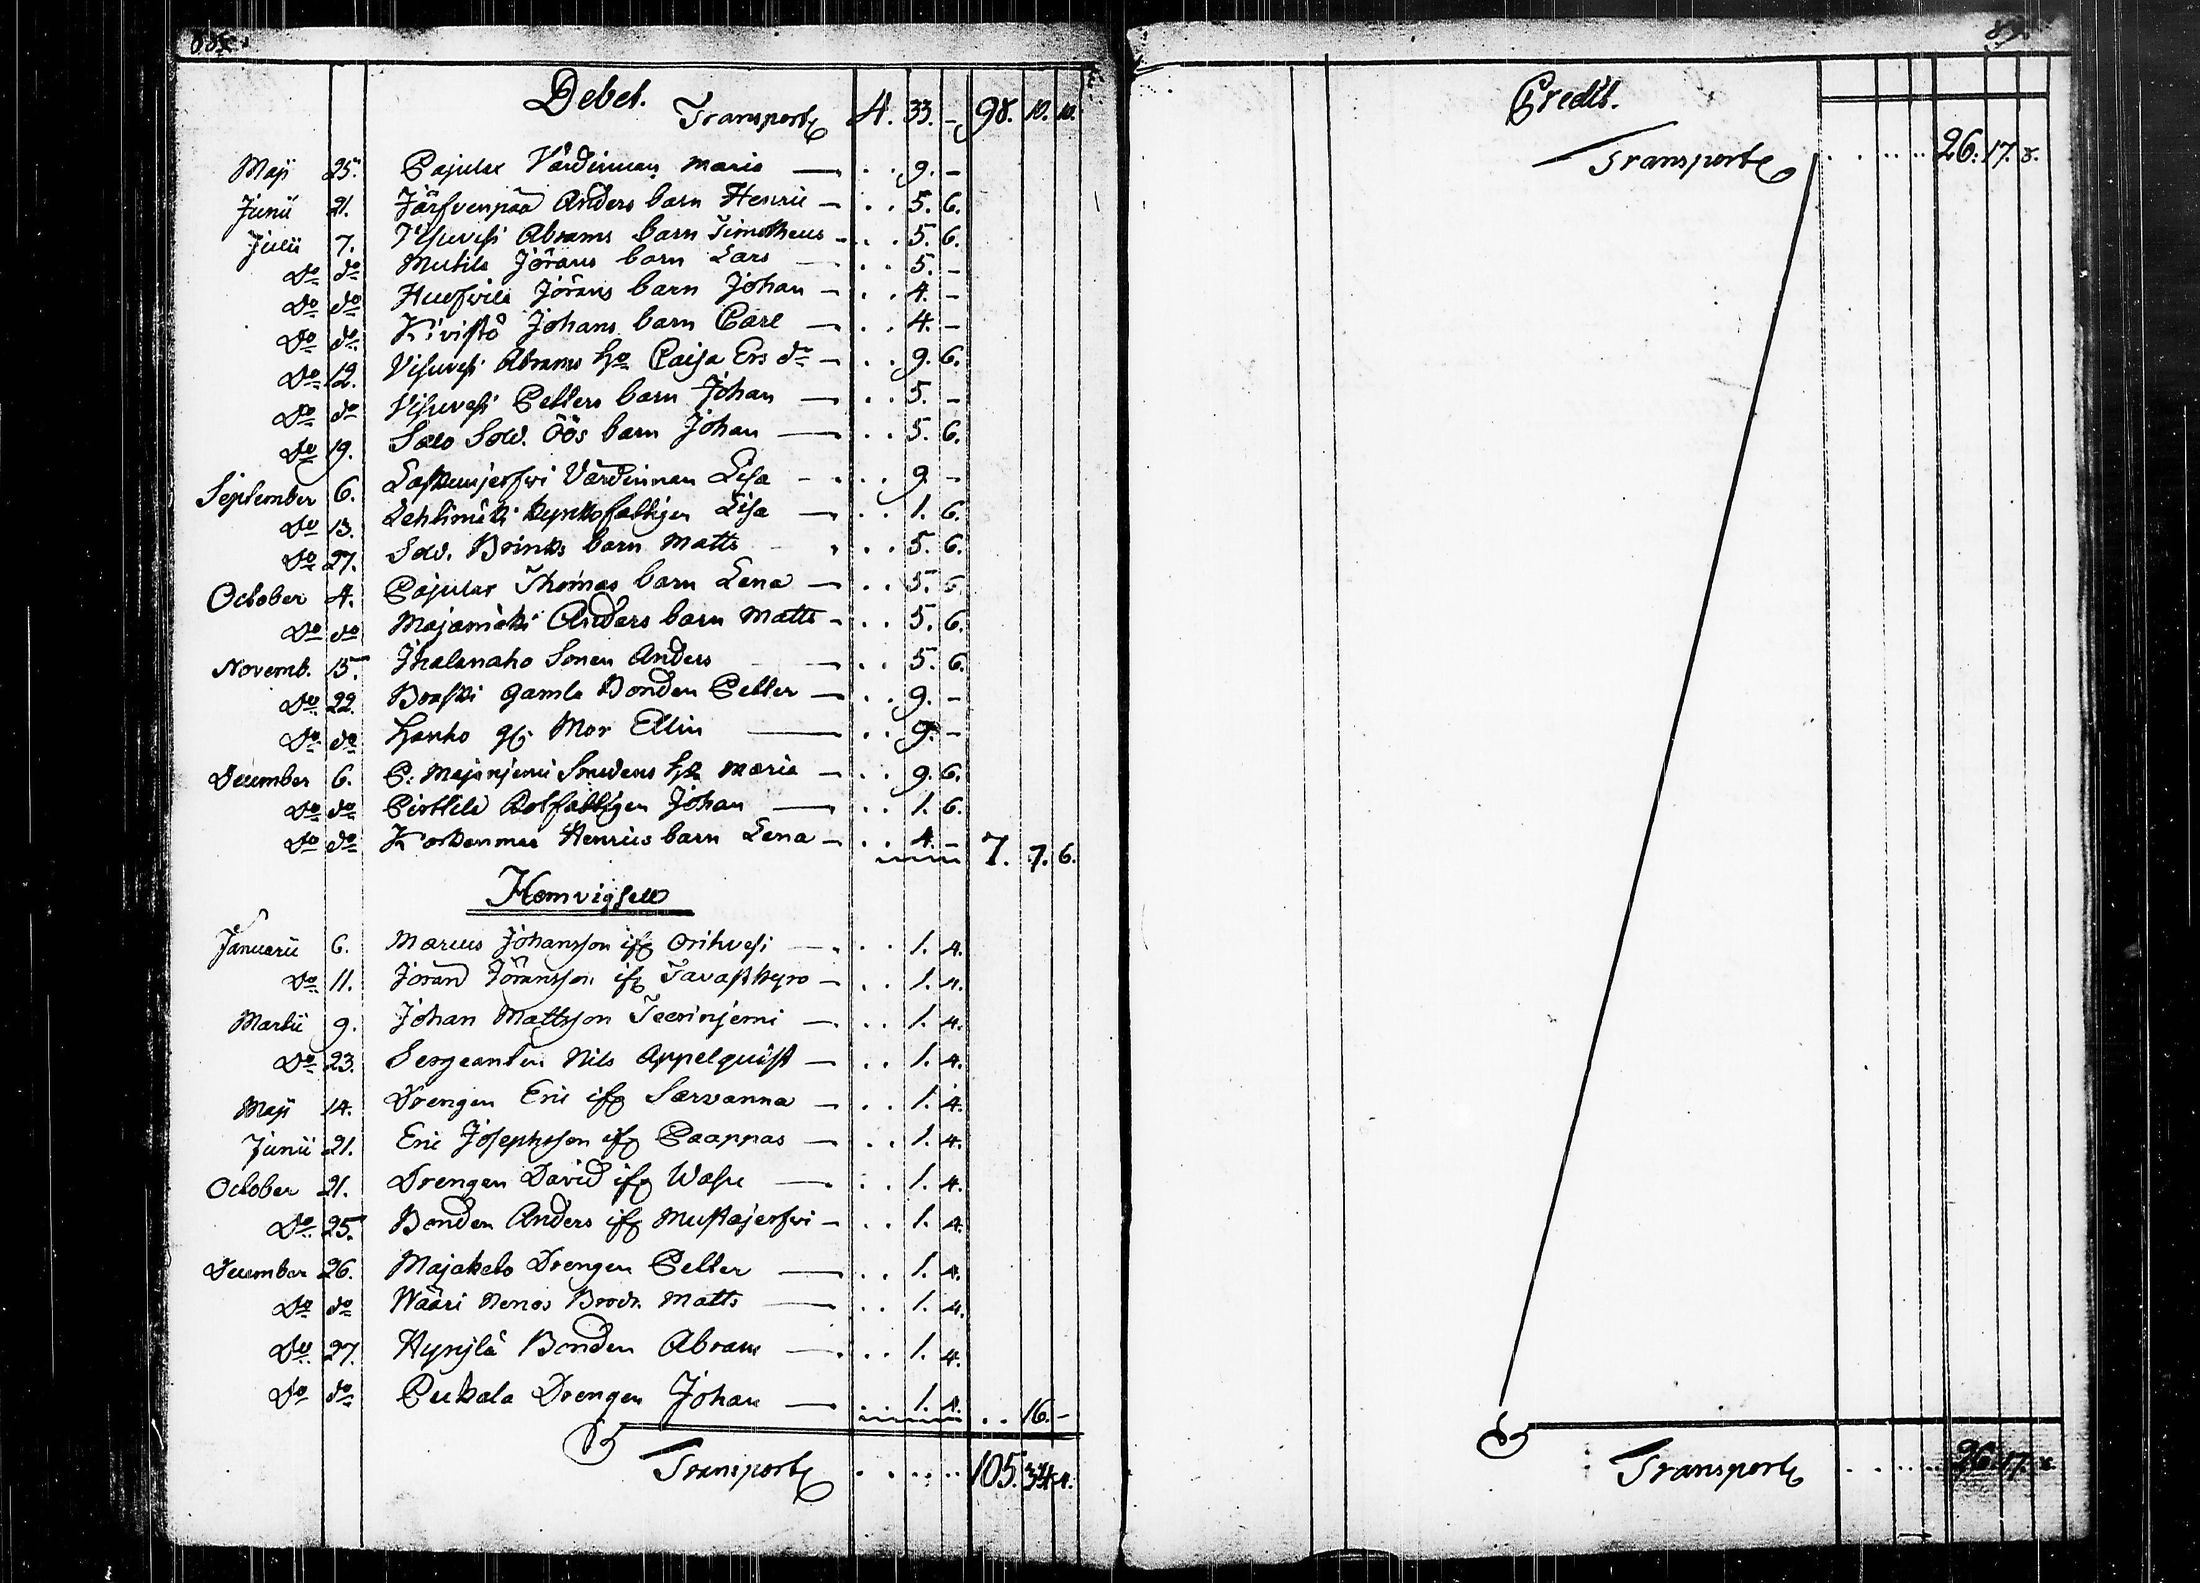 88.
Debet.
Transport 4. 33. - 98. 10. 10.
Maji 25. Pajulax Värdinnan Maria — . . 9. -
Junii 21. Järfvenpää Anders barn Henric — . . 5. 6.
Julii 7. Visuvesi Abrams barn Timotheus — . . 5. 6.
Do do Mutila Jörans barn Lars — . . 5. -
Do do Jörans barn Johan — . . 4. -
Do do Kivistö Johans barn Carl — . . 4. -
Do 12. Visuvesi Abrams Ho Caisa Ers dr — . . 9. 6.
Do do Visuvesi Petters barn Johan — . . 5. -
Do 19. Salo Sold. Öös barn Johan — . . 5. 6.
September 6. Laskunjerfwi Värdinnan Lisa — . . 9. -
Do 13. Lehtimäki Lisa — . . 1. 6.
Do 27. Sold. Brinks barn Matts . . 5. 6.
October 4. Pajulax Thomas barn Lena — . . 5. 6.
Do do Majamäki Anders barn Matts — . . 5. 6.
Novemb. 15. Ihalanaho Sonen Anders — . . 5. 6.
Do 22. Gamla Bonden Petter — . . 9. -
Do do Hanho Mor Ellin — . . 9. -
December 6. P. Majanjemi Smedens Maria — . . 9. 6.
Do do Pirttilä Rotfattigen Johan — . . 1. 6.
Do do Henrics barn Lena — . . 4. - 7. 7. 6.
Hemvigsell
Januarii 6. Marcus Johansson ifr Orihvesi — . . 1. 4.
Do 11. Jöran Jöransson ifr Tavastkyro — . . 1. 4.
Martii 9. Johan Mattsson Teerinjemi — . . 1. 4.
Do 23. Sergeanten Nils Appelquist — . . 1. 4.
Maji 14. Drengen Eric ifr Sarvanna — . . 1. 4.
Junii 21. Eric Josephsson ifr Paappas — . . 1. 4.
October 21. Drengen David ifr — . . 1. 4.
Do 25. Bonden Anders ifr Mustajerfwi — . . 1. 4.
December 26. Drengen Petter — . . 1. 4.
Do do Wääri Brodr. Matts — . . 1. 4.
Do 27. Bonden Abram — . . 1. 4.
Do do Pukala Drengen Johan — . . 1. 4. . . 16. -
Transport . . . . . 105. 34. 4.
89.
Credit.
Transport . . . . . 26. 17. 8.
Transport . . . . . 26. 17. 8.